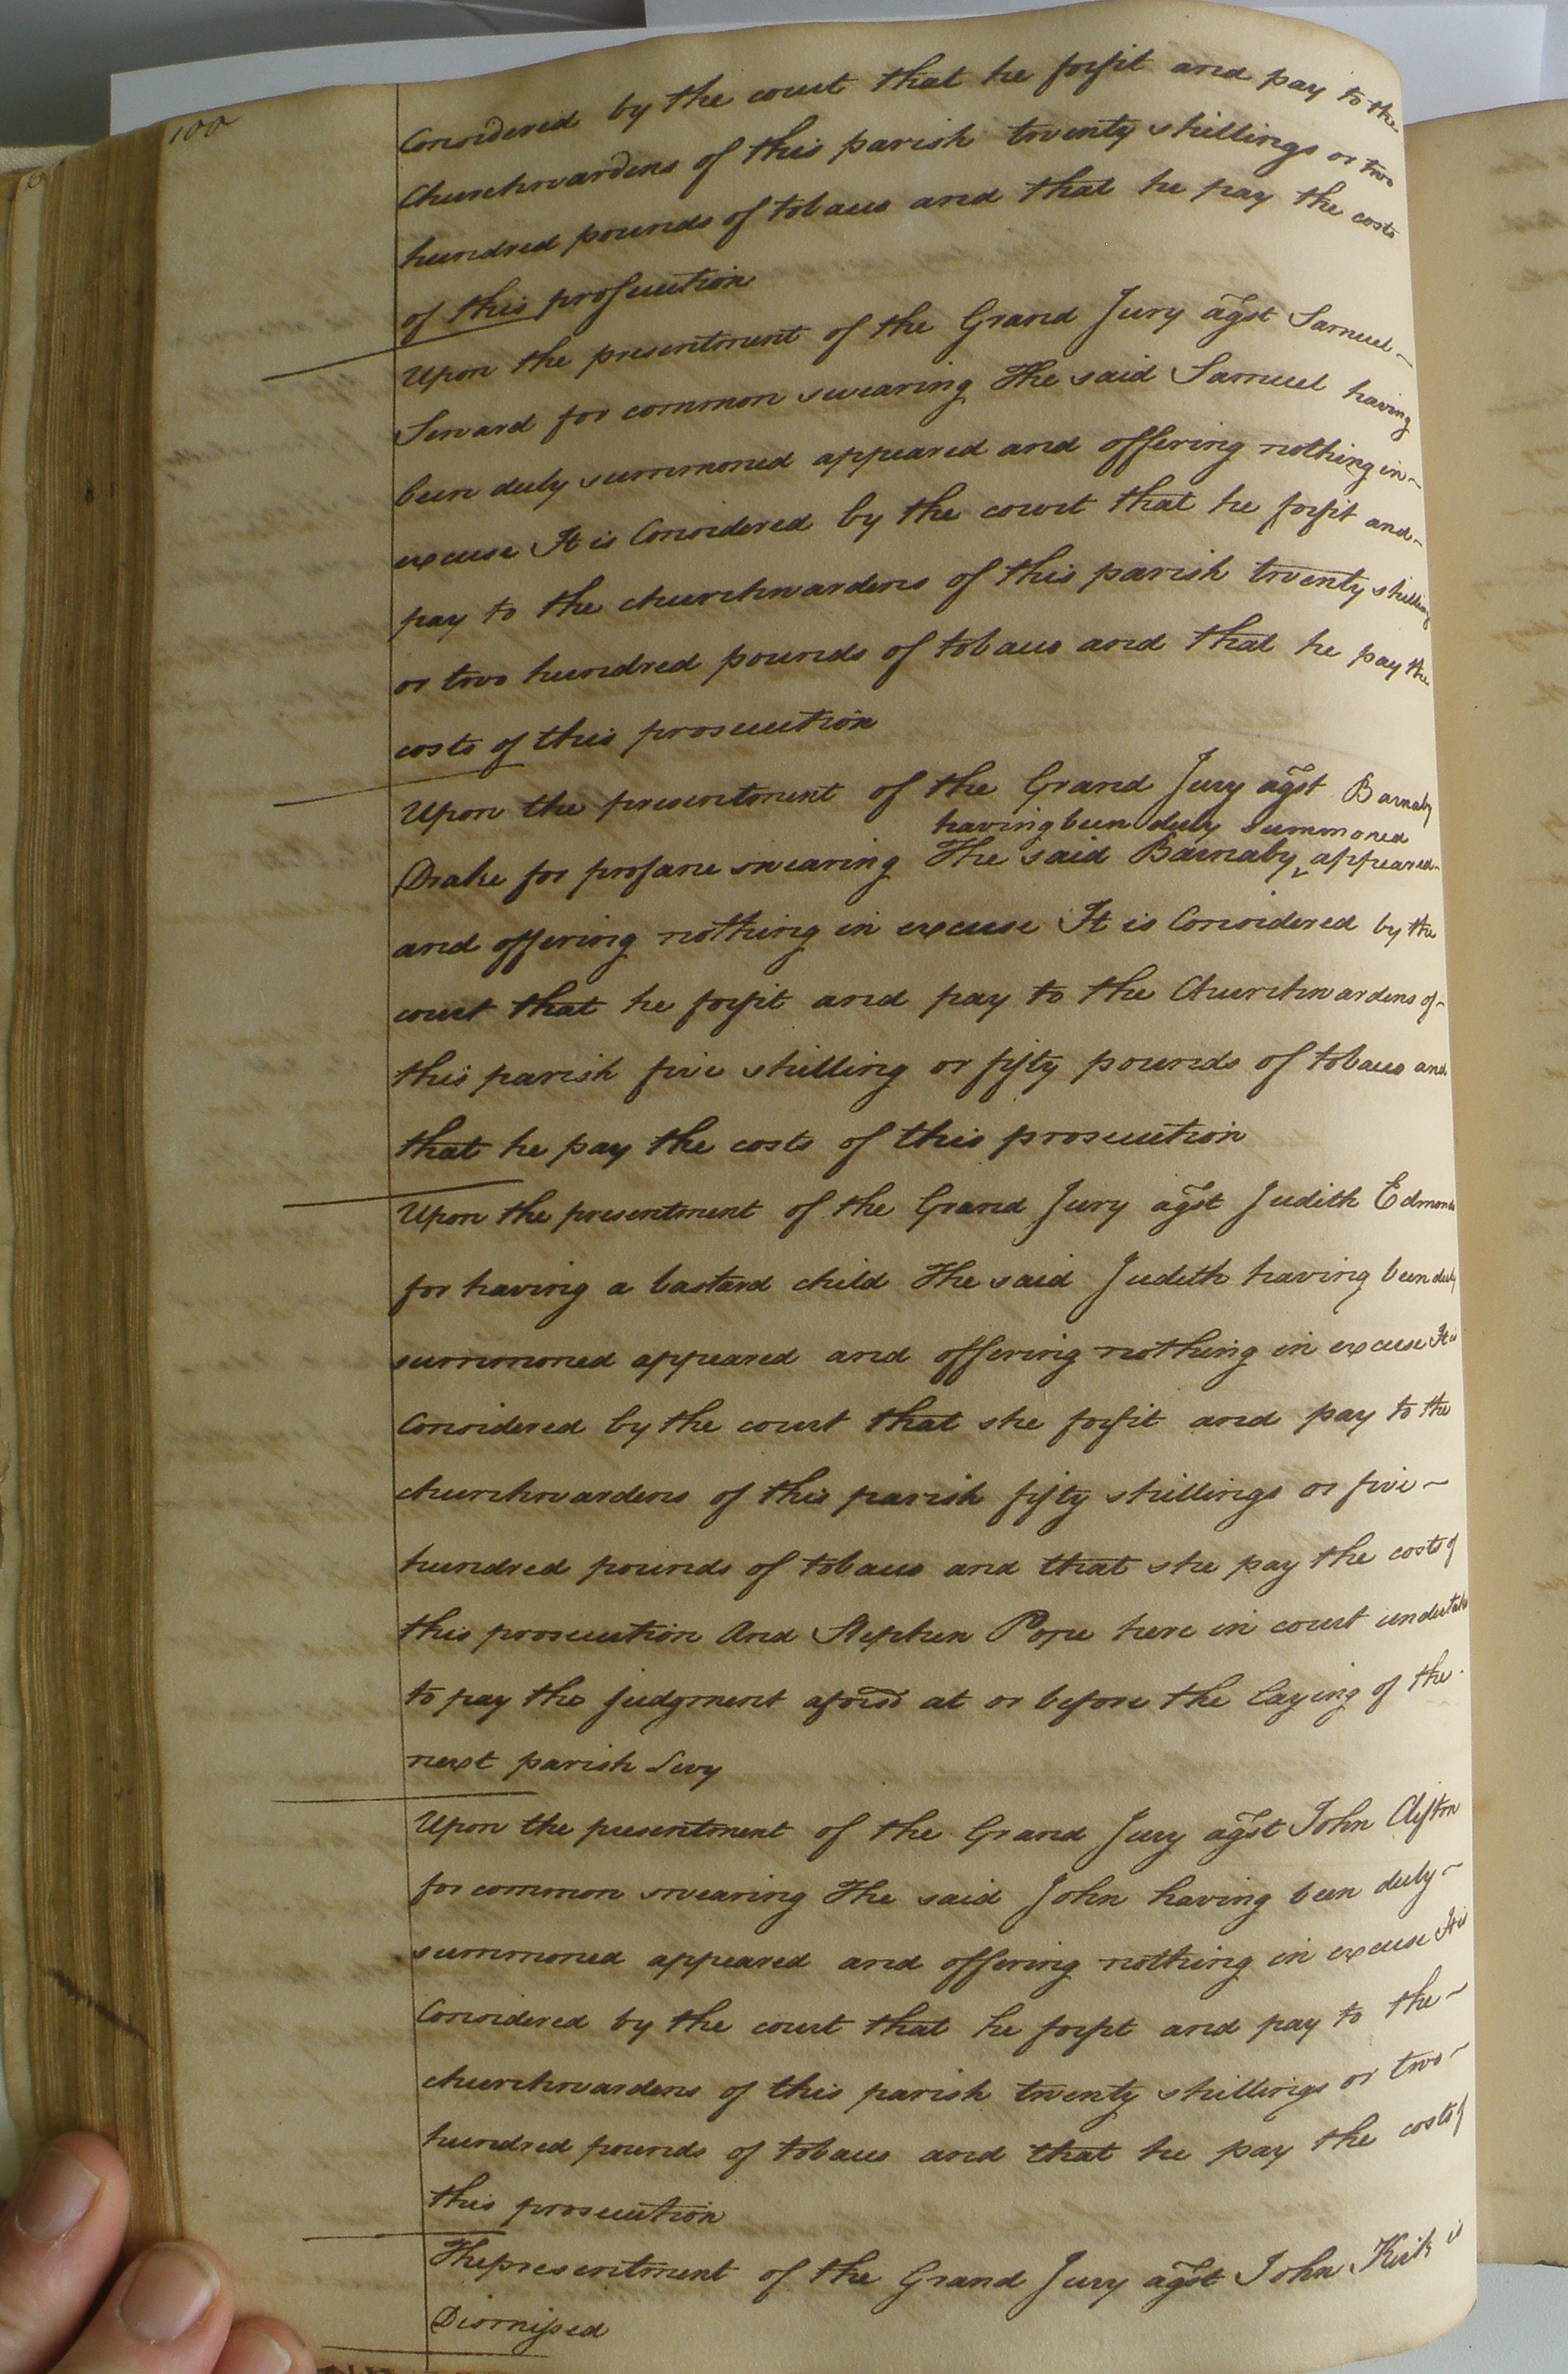 100
Considered by the court that he forfit and pay to the
Churchwardens of this parish twenty shillings or two
hundred pounds of tobacco and that he pay the costs
of this prosecution
Upon the presentment of the Grand Jury agst Samuel
Seward for common swearing The said Samuel having
been duly summoned appeared and offering nothing in
excuse It is Considered by the court that he forfit and
pay to the churchwardens of this parish twenty shillings
or two hundred pounds of tobacco and that he pay the
costs of this prosecution
Upon the presentment of the Grand Jury agst Barnaby
having been duly summoned
Drake for profane swearing The said Barnaby ‸ appeared
and offering nothing in excuse It is Considered by the
court that he forfit and pay to the Churchwardens of
this parish five shilling or fifty pounds of tobacco and
that he pay the costs of this prosecution
Upon the presentment of the Grand Jury agst Judith Edmonds
for having a bastard child The said Judith having been duly
summoned appeared and offering nothing in excuse It is
Considered by the court that she forfit and pay to the
churchwardens of this parish fifty shillings or five
hundred pounds of tobacco and that she pay the costs of
this prosecution And Stephen Pope here in court undertakes
to pay the judgment aforsd at or before the laying of the
next parish Levy
Upon the presentment of the Grand Jury agst John Clifton
for common swearing The said John having been duly
summoned appeared and offering nothing in excuse It is
Considered by the court that he forfit and pay to the
churchwardens of this parish twenty shillings or two
hundred pounds of tobacco and that he pay the costs of
this prosecution
The presentment of the Grand Jury agst John Kirk is
Dismissed